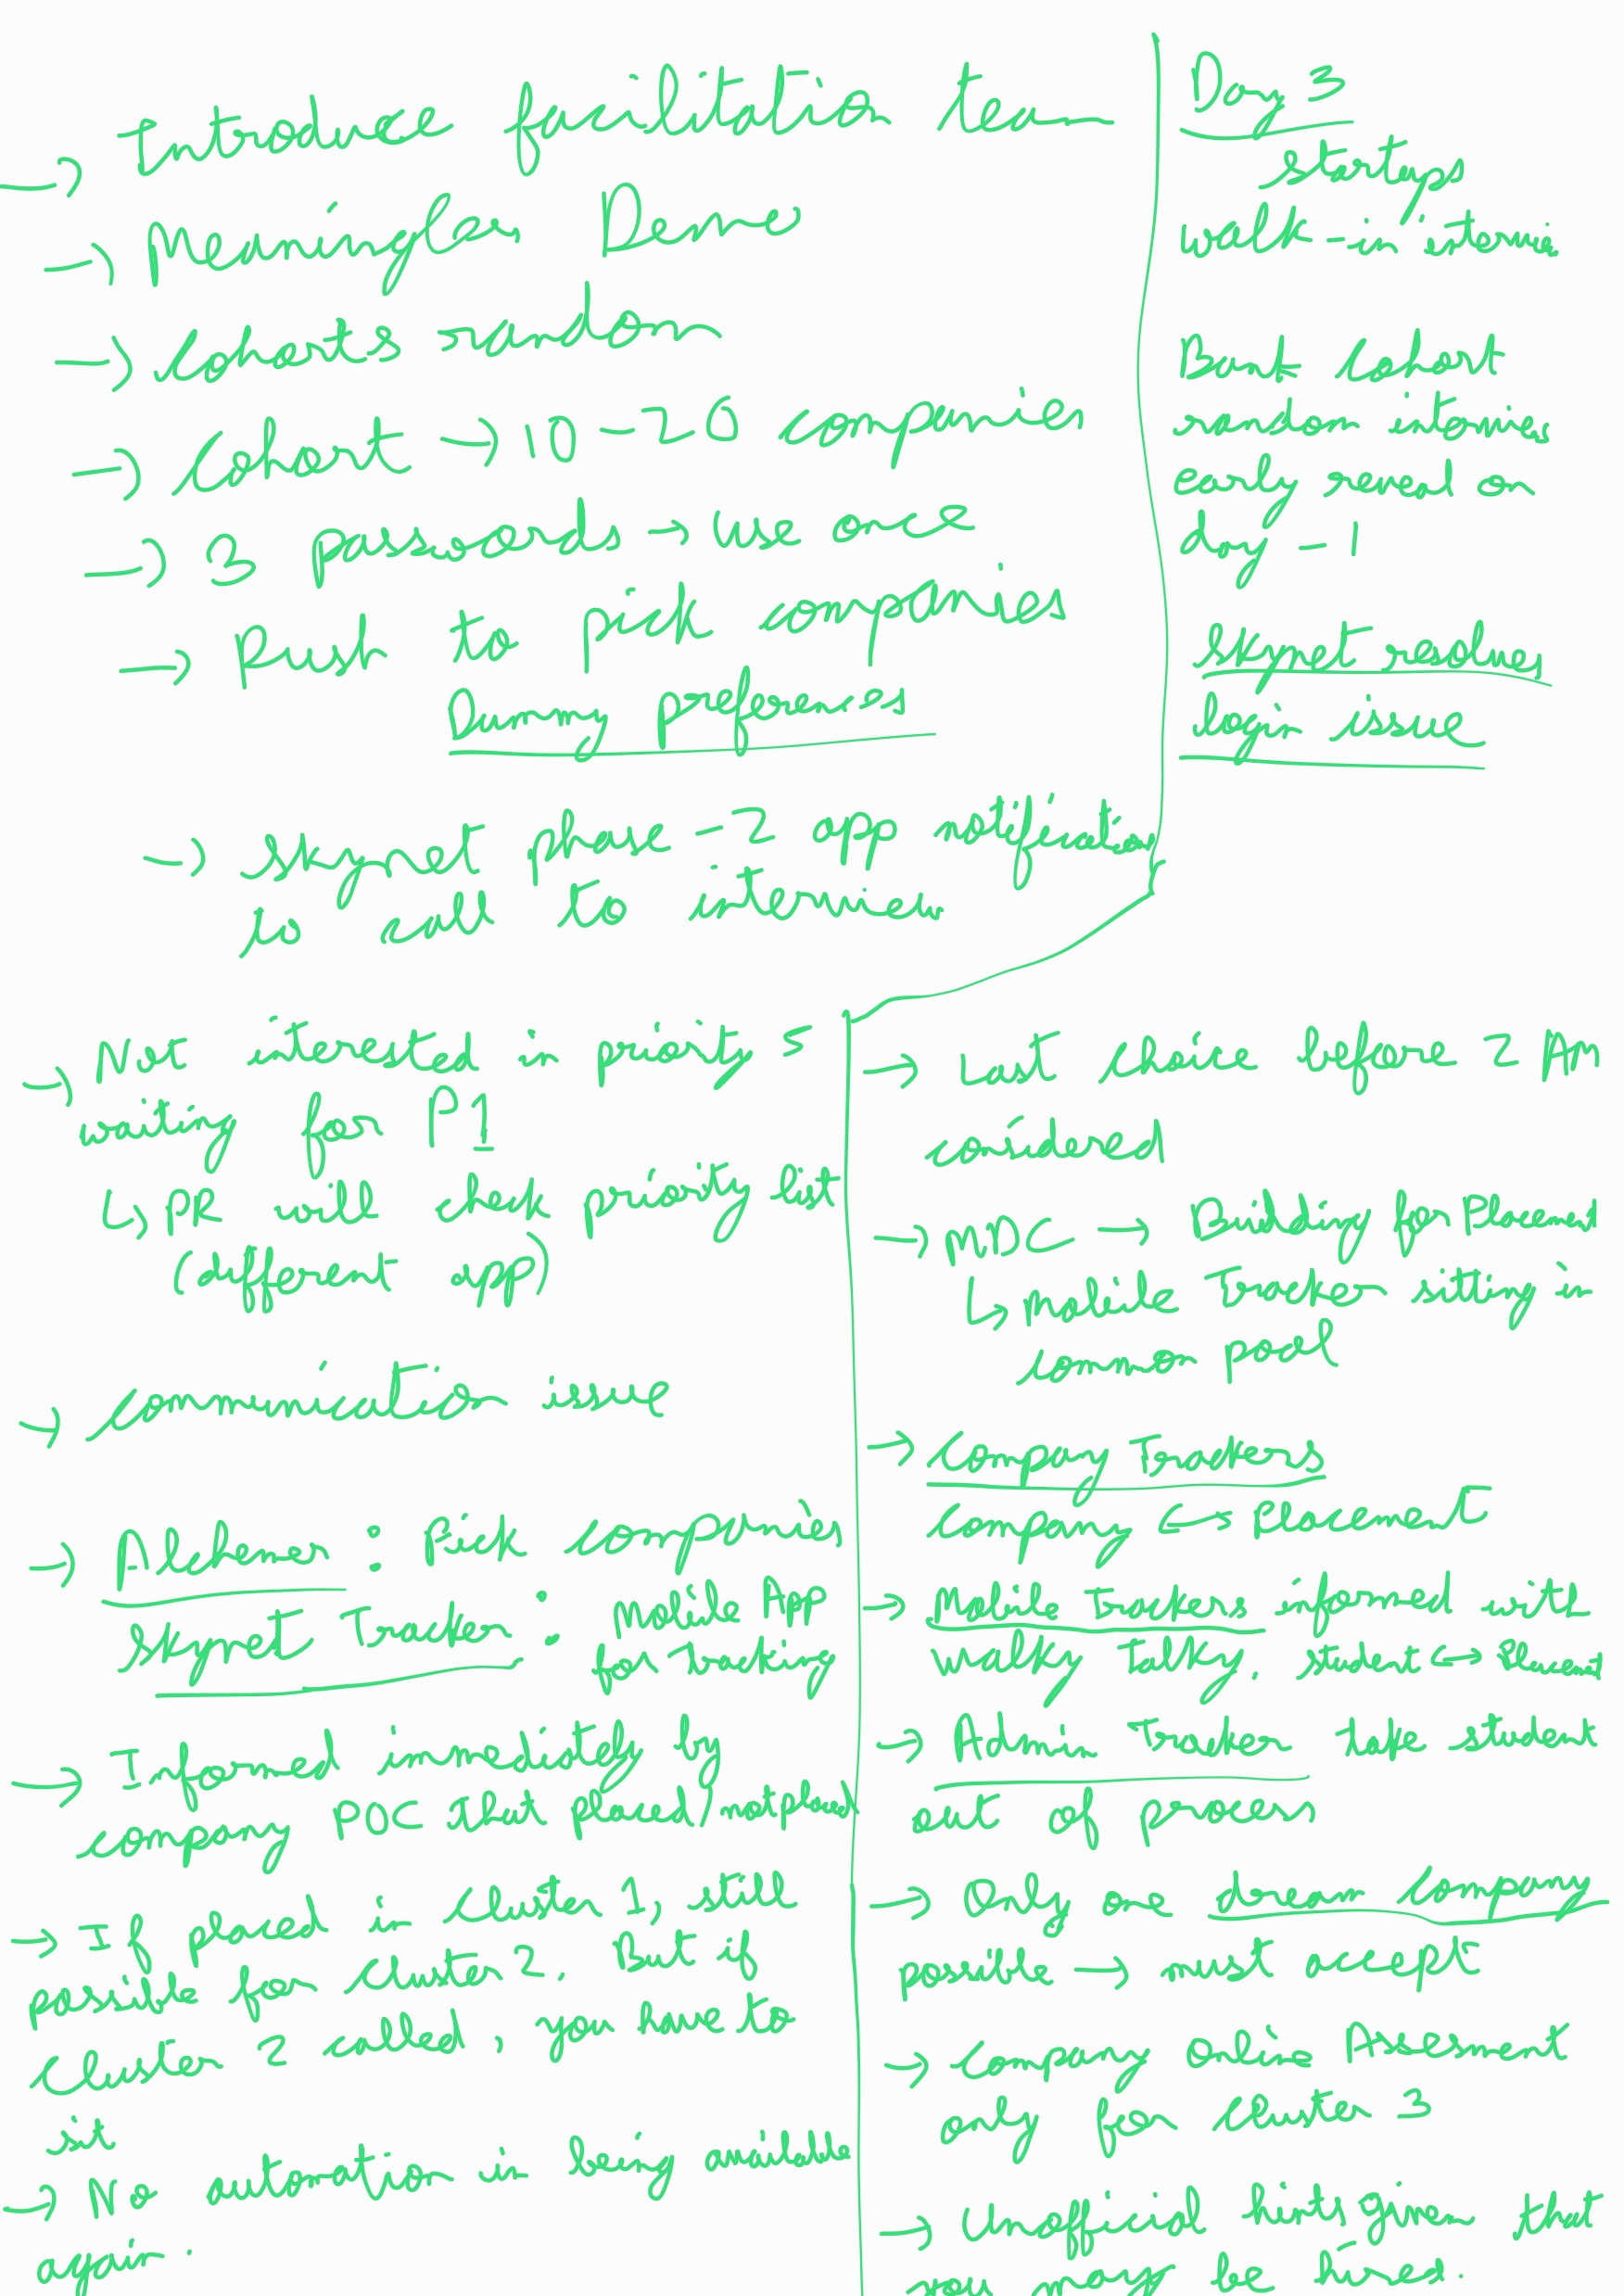 → Introduce facilitation team
→ Meaningless Demo
→ Cohorts random
→ Cohort → 10-20 companies
→ 3 password → use once
→ Push to pick companies
Dummy preferences
→ Skynet phase-2 app notification
is call to interview
Day 3
startups
walk-in interview
Bank cohort
random interview
early send on
day-1
Skynet readiness
login issue
→ Not interested in priority 5
waiting for P1
↳ PR will check priority list
(different app)
→ communication issue
→ : Pick companies
Skynet Tracker : Mobile App
for Tracking
→ Informed immediately by
company POC about placed/not placed
→ If placed in Cluster 1, still
possible for cluster 2. But if
Cluster 2 called, you have to
sit
→ No automation in being available
again.
→ Last choice before 2 AM
considered
→ MDC → Building for Placement
↳ mobile Tracker sitting in
common pool
→ Company Trackers
Company ↔ Placement
→ Mobile Trackers informed with
Walky Talky. student ↔ Placement
→ Admin Tracker take student
out of process
→ Only one dream company
possible → must accept
→ Company online Assesment
only for cluster 3
→ Unofficial that
you be hired.